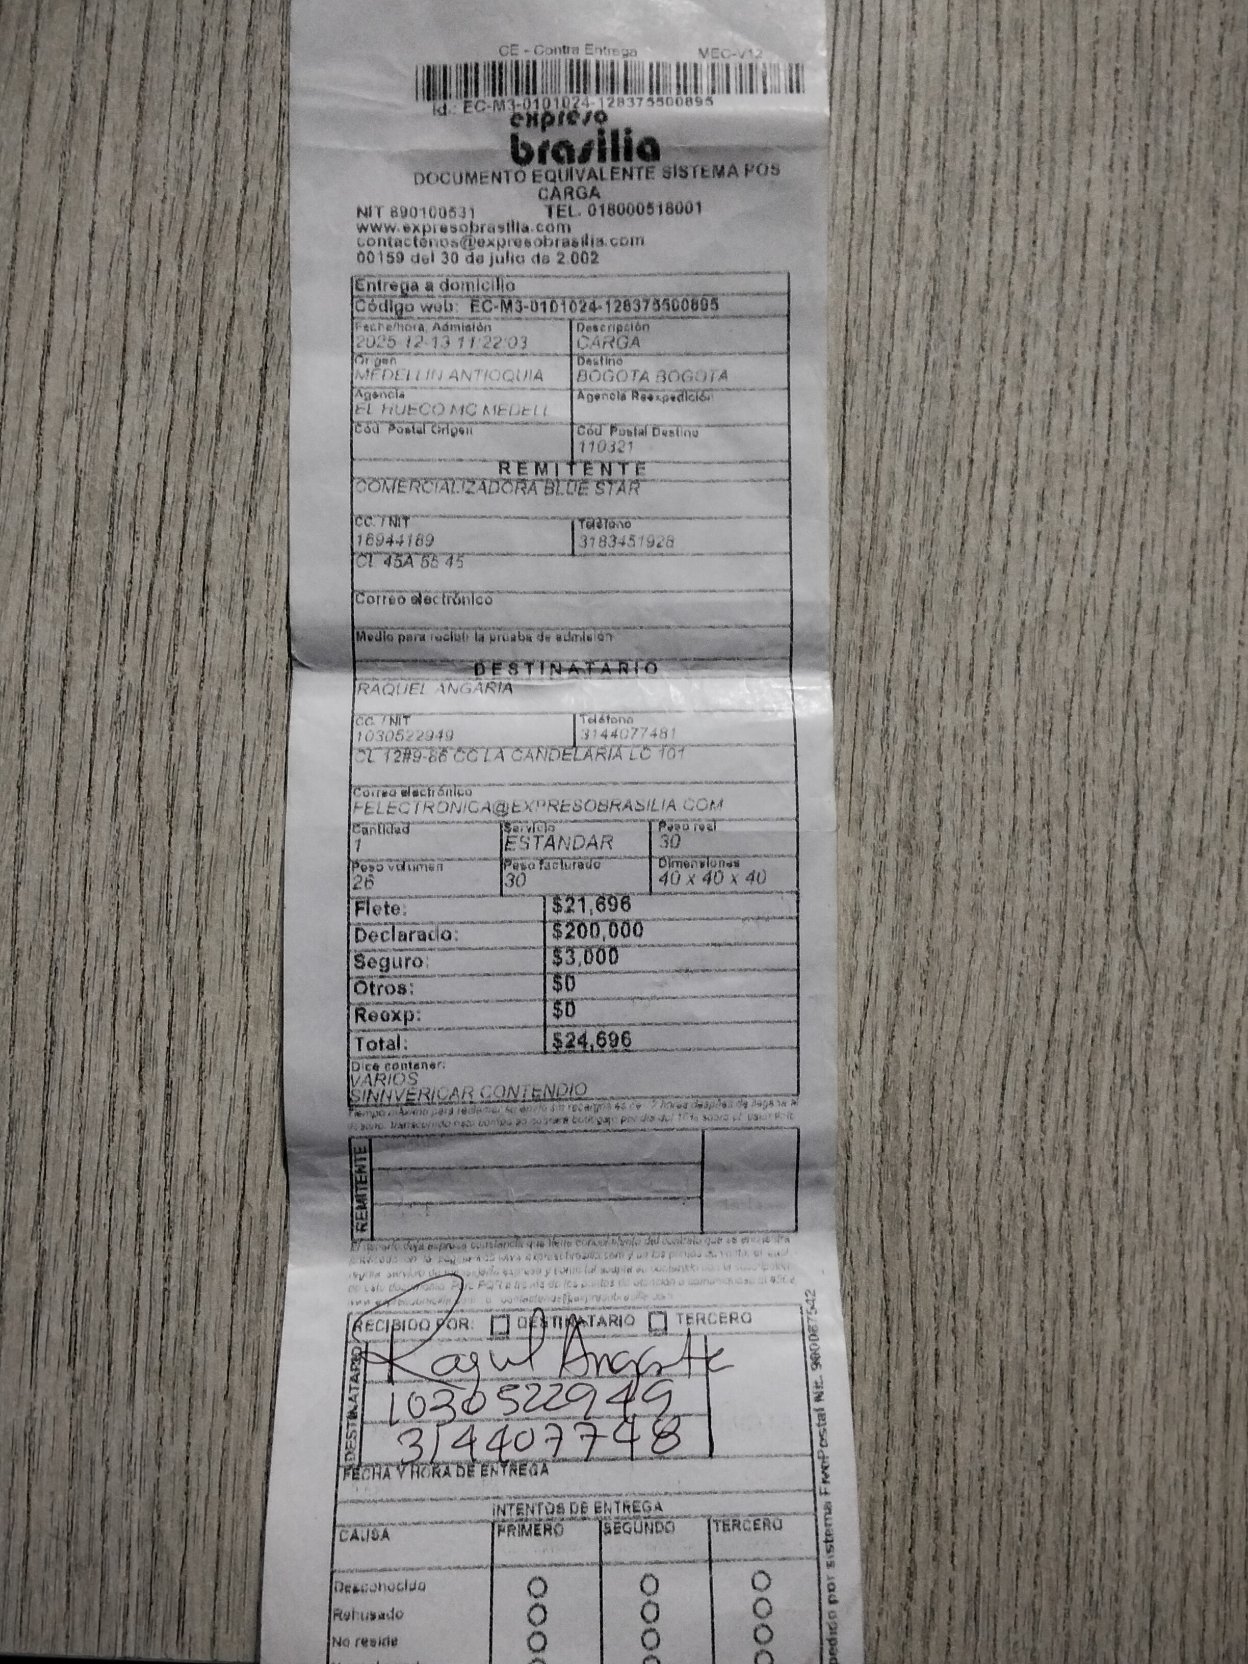 CE - Contra Entrega MEC-V12
Id.: EC-M3-0101024-128375500895
expreso
brasilia
DOCUMENTO EQUIVALENTE SISTEMA POS
CARGA
NIT 890100531 TEL. 018000518001
www.expresobrasilia.com
contactenos@expresobrasilia.com
00159 del 30 de julio de 2.002
Entrega a domicilio
Código web: EC-M3-0101024-128375500895
Fecha/hora, Admisión Descripción
2025-12-13 11:22:03 CARGA
Origen Destino
MEDELLIN ANTIOQUIA BOGOTA BOGOTA
Agencia Agencia Reexpedición
EL HUECO MC MEDELL
Cód. Postal Origen Cód. Postal Destino
110321
REMITENTE
COMERCIALIZADORA BLUE STAR
CC. / NIT Teléfono
16944189 3183451928
CL 45A 55 45
Correo electrónico
Medio para recibir la prueba de admisión
DESTINATARIO
RAQUEL ANGARIA
CC. / NIT Teléfono
1030522949 3144077481
CL 12#9-86 CC LA CANDELARIA LC 101
Correo electrónico
FELECTRONICA@EXPRESOBRASILIA.COM
Cantidad Servicio Peso real
1 ESTANDAR 30
Peso volumen Peso facturado Dimensiones
26 30 40 x 40 x 40
Flete: $21,696
Declarado: $200,000
Seguro: $3,000
Otros: $0
Reexp: $0
Total: $24,696
Dice contener:
VARIOS
SINNVERICAR CONTENDIO
REMITENTE
RECIBIDO POR: DESTINATARIO TERCERO
DESTINATARIO
1030522949
314407748
FECHA Y HORA DE ENTREGA
INTENTOS DE ENTREGA
CAUSA PRIMERO SEGUNDO TERCERO
Desconocido
Rehusado
No reside